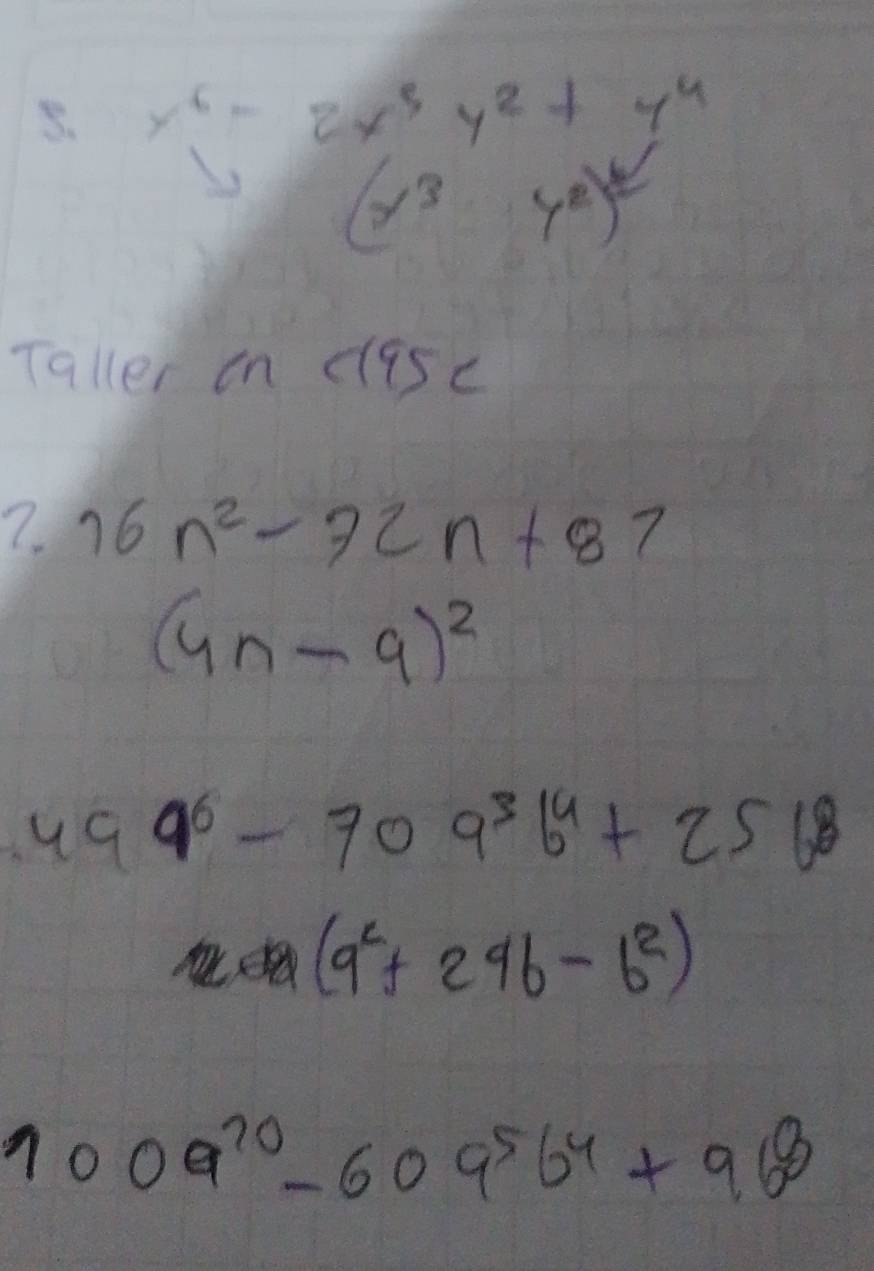 5. x⁶ - 2x³ y² + y⁴
(x³ y²)²
Taller en clase
1. 16 n² - 72 n + 81
(4n - 9)²
.49 a⁶ - 70 a³ b⁴ + 25 b⁸
(a² + 2ab - b²)
100a¹⁰ - 60 a⁵ b⁴ + 9 b⁸